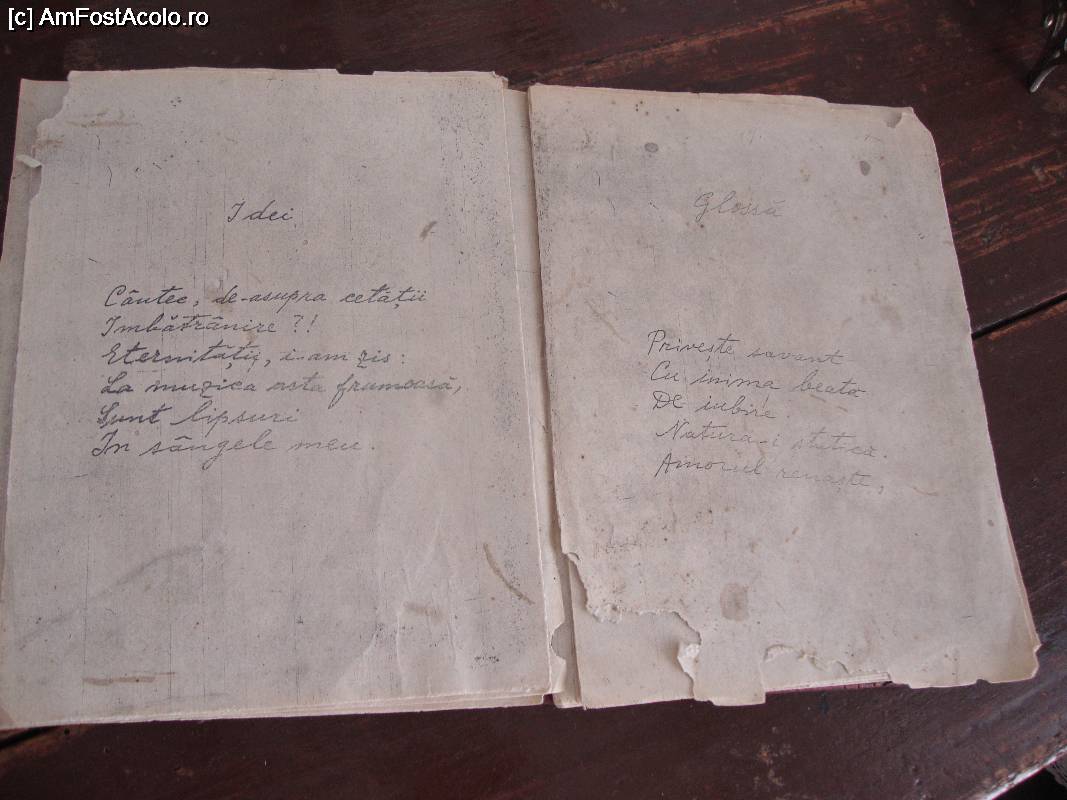 [c] AmFostAcolo.ro
Idei
Cântec, de-asupra cetății
Imbătrânire ?!
Eternității, i-am zis:
La muzica asta frumoasă,
Sunt lipsuri
In sângele meu.
Glossă
Privește savant
Cu inima beata
De iubire.
Natura-i statică.
Amorul renaște,